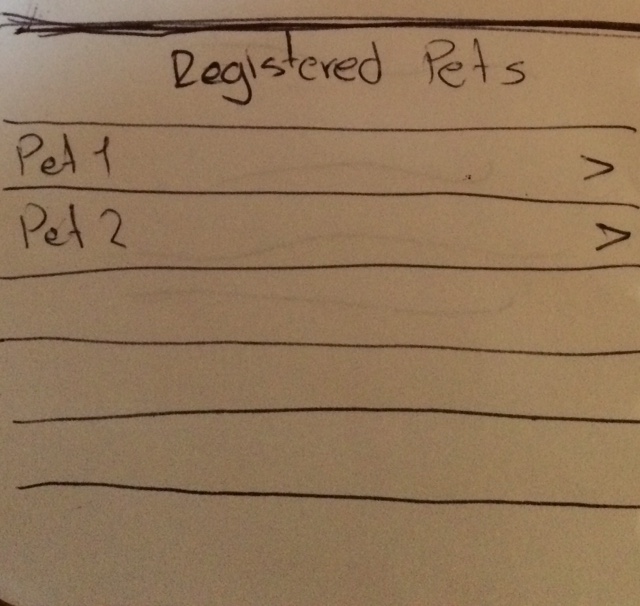 Registered Pets
Pet 1 >
Pet 2 >